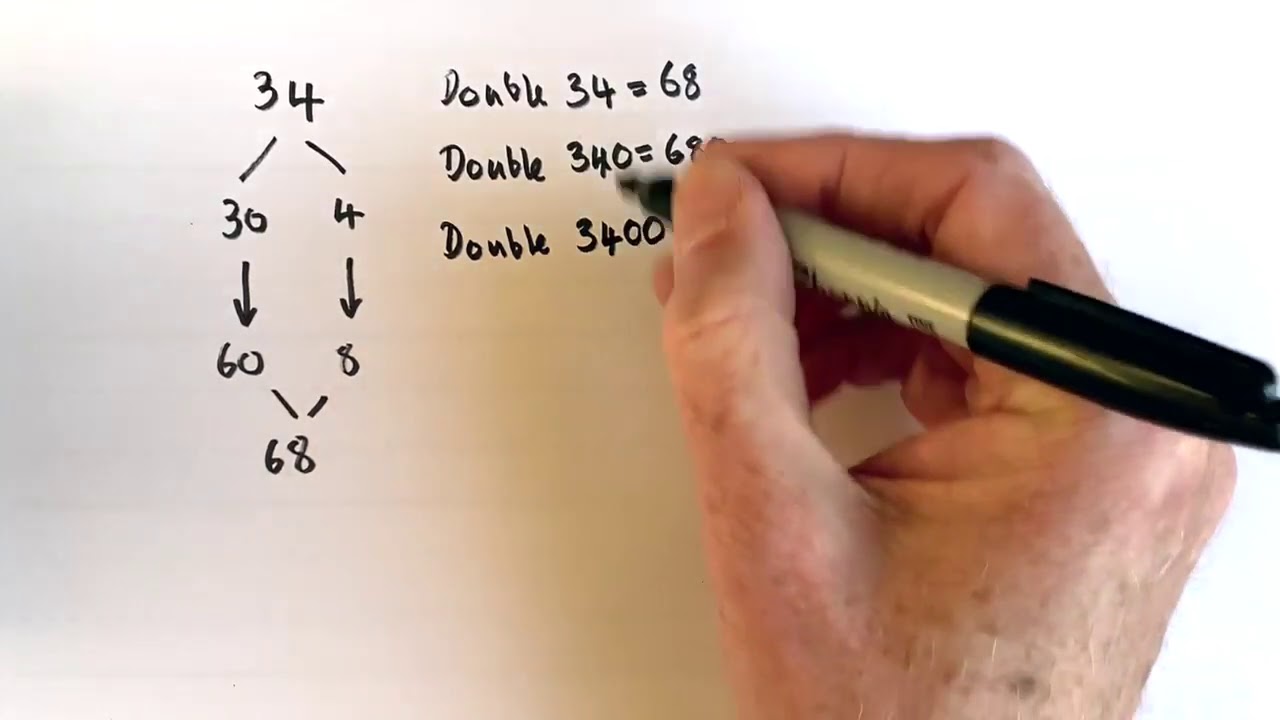 34
30 4
60 8
68
Double 34 = 68
Double 340 = 68
Double 3400